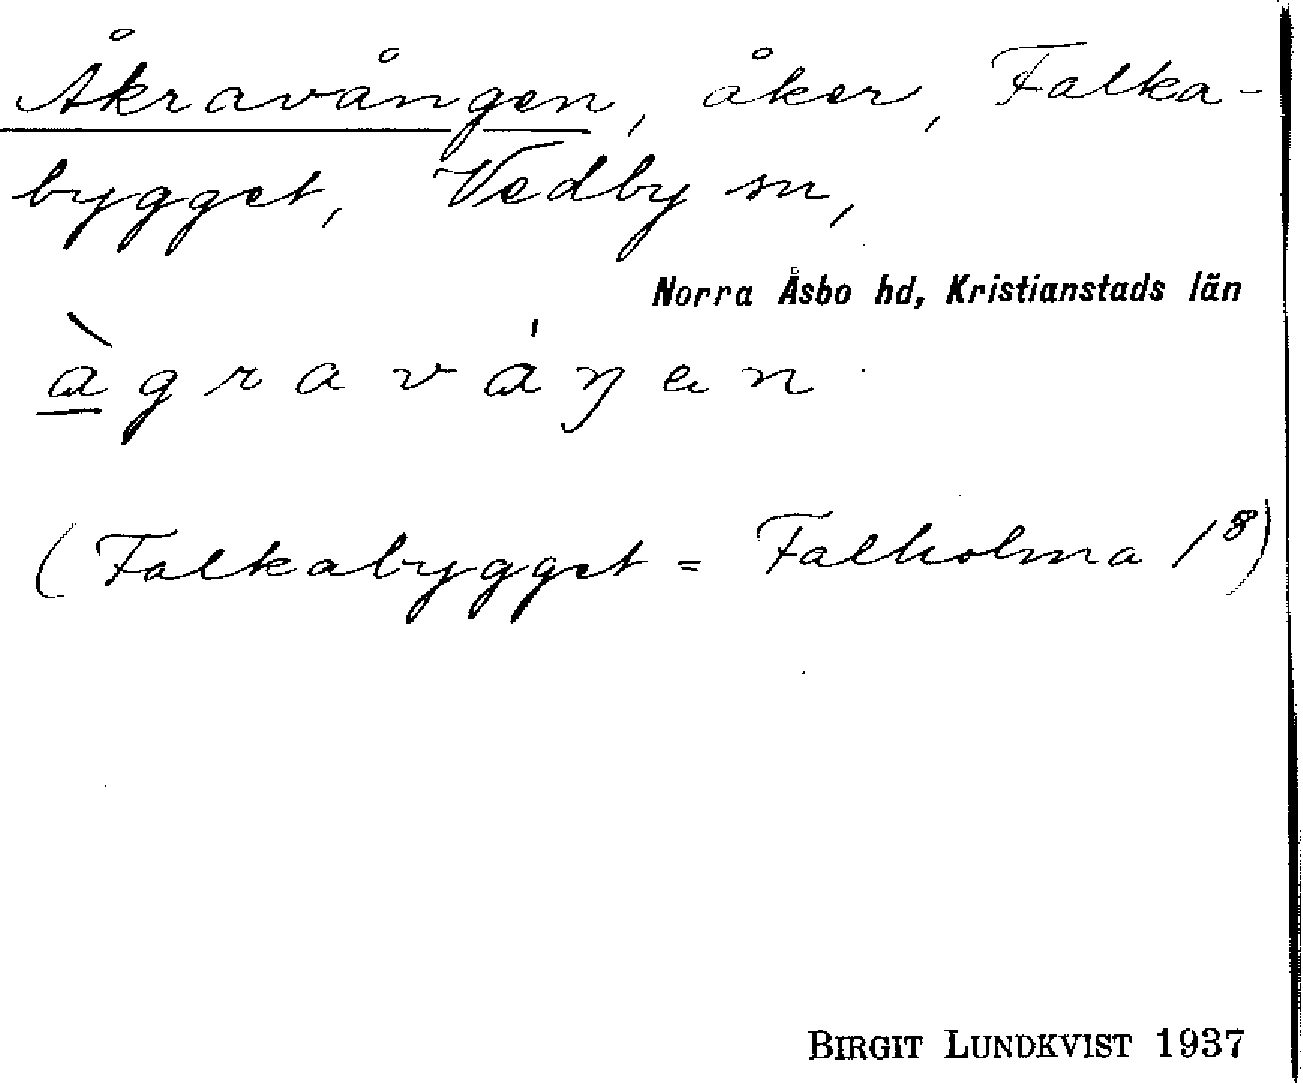 Åkravången, åker, Falka-
bygget, Vedby sn,
Norra Åsbo hd, Kristianstads län
àgraváŋen
(Falkabygget = Falholma 1⁸)
BIRGIT LUNDKVIST 1937